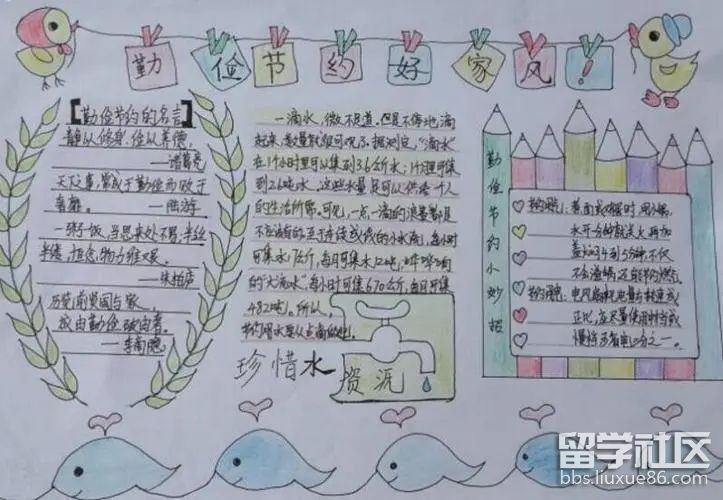 勤俭节约好家风!
【勤俭节约的名言】
静以修身,俭以养德。
——诸葛亮
天下之事,常成于勤俭而败于
奢靡。——陆游
一粥一饭,当思来处不易,半丝
半缕,恒念物力维艰。
——朱柏庐
历览前贤国与家,
成由勤俭破由奢。
——李商隐
一滴水,微不足道。但是不停地滴
起来,数量就很可观了。据测定,“滴水”
在1个小时里可以集到3.6公斤水;1个月里可集
到2.6吨水。这些水量足可以供给一个人
的生活所需。可见,一点一滴的浪费都是
不应该有的。至于连续成线的小水流,每小时
可集水17公斤,每月可集水12吨,哗哗响
的“大流水”,每小时可集670公斤,每月可集
482吨。所以,
节约用水要从点滴做起。
珍惜水资源
勤俭节约小妙招
节约小妙招1:煮面或粥时,用小锅,
水开后
盖焖4到5分钟,不仅
不会溢锅还能节约燃气。
节约小妙招2:电风扇耗电量与转速成
正比,应尽量使用中档或
慢档可省电
留学社区
bbs.liuxue86.com